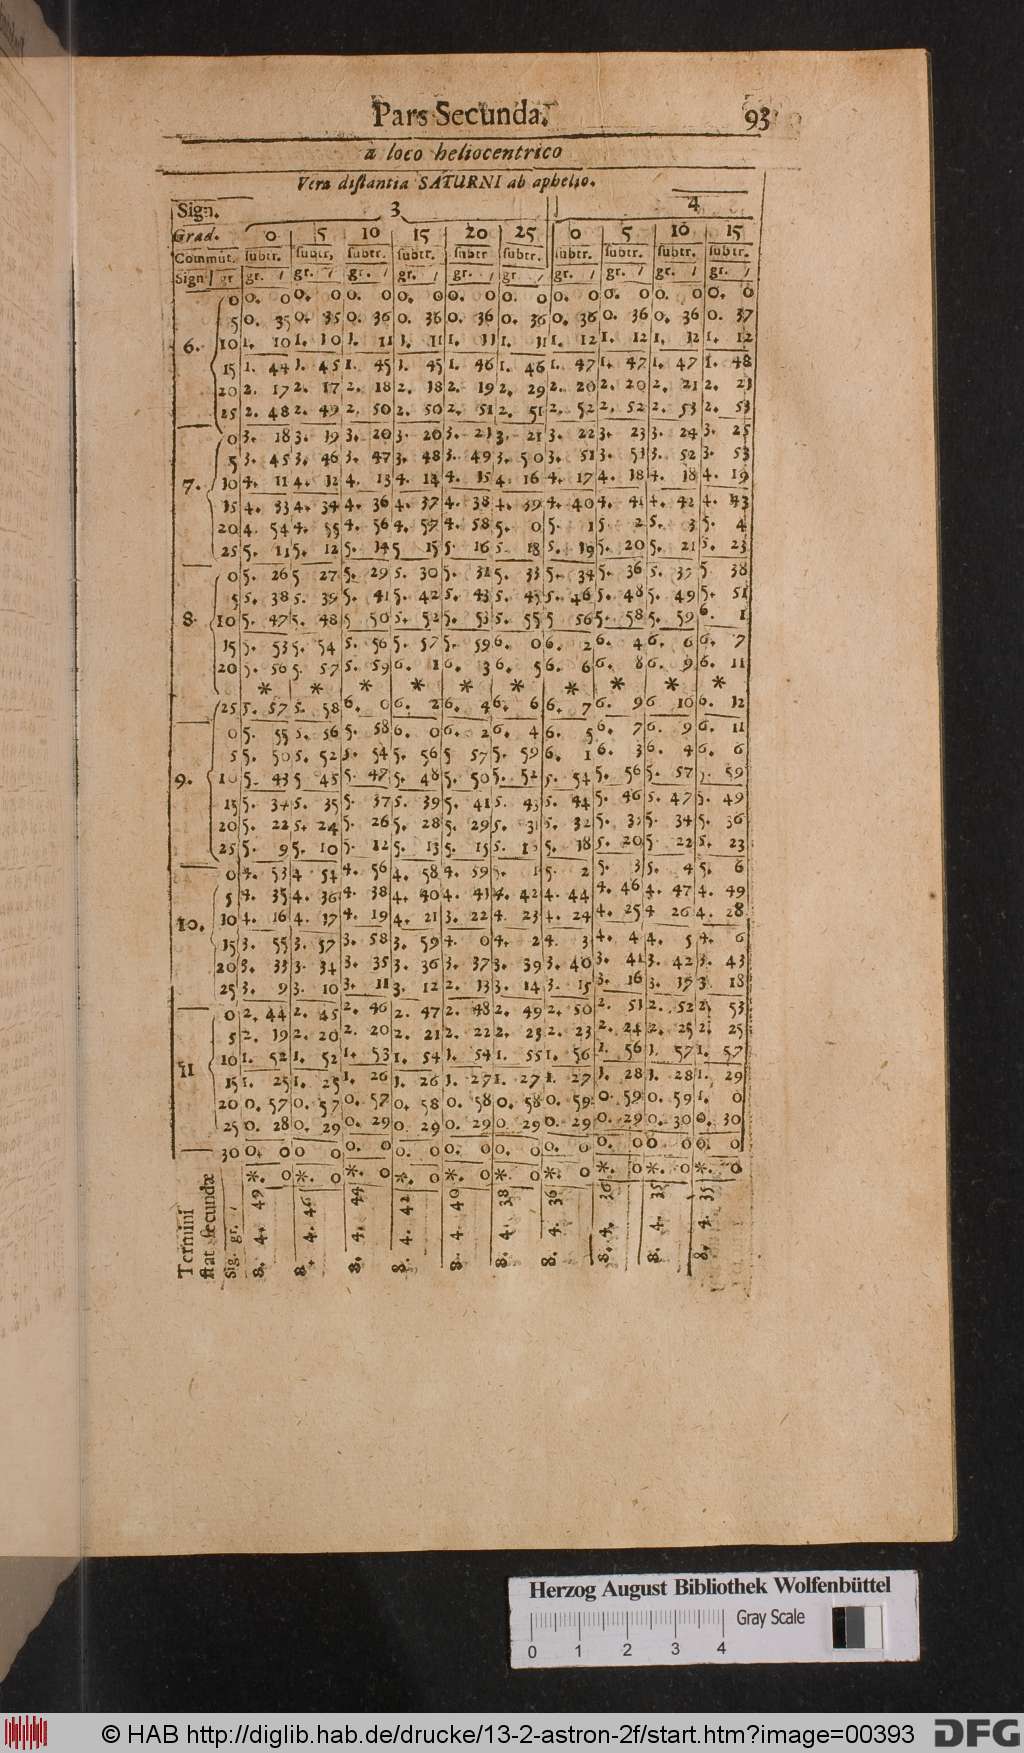 Pars Secunda. 93
a loco heliocentrico
Vera distantia SATURNI ab aphelio.
Sign. 3 4
Grad. 0 5 10 15 20 25 0 5 10 15
Commut. subtr. subtr, subtr. subtr. subtr subtr. subtr. subtr. subtr. subtr.
Sign gr gr. / gr. / gr. / gr. / gr. / gr / gr. / gr. / gr. / gr. /
0 0. 0 0. 0 0. 0 0. 0 0. 0 0. 0 0. 0 0. 0 0. 0 0. 0
5 0. 35 0. 35 0. 36 0. 36 0. 36 0. 36 0. 36 0. 36 0. 36 0. 37
6. 10 1. 10 1. 10 1. 11 1. 11 1. 11 1. 11 1. 12 1. 12 1. 12 1. 12
15 1. 44 1. 45 1. 45 1. 45 1. 46 1. 46 1. 47 1. 47 1. 47 1. 48
20 2. 17 2. 17 2. 18 2. 18 2. 19 2. 29 2. 20 2. 20 2. 21 2. 21
25 2. 48 2. 49 2. 50 2. 50 2. 51 2. 51 2. 52 2. 52 2. 53 2. 53
0 3. 18 3. 19 3. 20 3. 20 3. 21 3. 21 3. 22 3. 23 3. 24 3. 25
5 3. 45 3. 46 3. 47 3. 48 3. 49 3. 50 3. 51 3. 53 3. 52 3. 53
7. 10 4. 11 4. 12 4. 13 4. 14 4. 15 4. 16 4. 17 4. 18 4. 18 4. 19
15 4. 33 4. 34 4. 36 4. 37 4. 38 4. 39 4. 40 4. 41 4. 42 4. 43
20 4. 54 4. 55 4. 56 4. 57 4. 58 5. 0 5. 1 5. 2 5. 3 5. 4
25 5. 11 5. 12 5. 14 5 15 5. 16 5. 18 5. 19 5. 20 5. 21 5. 23
0 5. 26 5 27 5. 29 5. 30 5. 31 5. 33 5. 34 5. 36 5. 37 5. 38
5 5. 38 5. 39 5. 41 5. 42 5. 43 5. 45 5. 46 5. 48 5. 49 5. 51
8. 10 5. 47 5. 48 5 50 5. 52 5. 53 5. 55 5 56 5. 58 5. 59 6. 1
15 5. 53 5. 54 5. 56 5. 57 5. 59 6. 0 6. 2 6. 4 6. 6 6. 7
20 5. 56 5. 57 5. 59 6. 1 6. 3 6. 5 6. 6 6. 8 6. 9 6. 11
* * * * * * * * * *
25 5. 57 5. 58 6. 0 6. 2 6. 4 6. 6 6. 7 6. 9 6 10 6. 12
0 5. 55 5. 56 5. 58 6. 0 6. 2 6. 4 6. 5 6. 7 6. 9 6. 11
5 5. 50 5. 52 5. 54 5. 56 5 57 5. 59 6. 1 6. 3 6. 4 6. 6
9. 10 5. 43 5 45 5. 47 5. 48 5. 50 5. 52 5. 54 5. 56 5. 57 5. 59
15 5. 34 5. 35 5. 37 5. 39 5. 41 5. 43 5. 44 5. 46 5. 47 5. 49
20 5. 22 5. 24 5. 26 5. 28 5. 29 5. 31 5. 32 5. 33 5. 34 5. 36
25 5. 9 5. 10 5. 12 5. 13 5. 15 5. 5. 18 5. 20 5. 22 5. 23
0 4. 53 4 54 4. 56 4. 58 4. 59 5. 1 5. 2 5. 3 5. 4 5. 6
5 4. 35 4. 36 4. 38 4. 40 4. 41 4. 42 4. 44 4. 46 4. 47 4. 49
10. 10 4. 16 4. 17 4. 19 4. 21 3. 22 4. 23 4. 24 4. 25 4 26 4. 28
15 3. 55 3. 57 3. 58 3. 59 4. 0 4. 2 4. 3 4. 4 4. 5 4. 6
20 3. 33 3. 34 3. 35 3. 36 3. 37 3. 39 3. 40 3. 41 3. 42 3. 43
25 3. 9 3. 10 3. 11 3. 12 2. 13 3. 14 3. 15 3. 16 3. 17 3. 18
0 2. 44 2. 45 2. 46 2. 47 2. 48 2. 49 2. 50 2. 51 2. 52 2. 53
5 2. 19 2. 20 2. 20 2. 21 2. 22 2. 23 2. 23 2. 24 2. 25 2. 25
11 10 1. 52 1. 52 1. 53 1. 54 1. 54 1. 55 1. 56 1. 56 1. 57 1. 57
15 1. 25 1. 25 1. 26 1. 26 1. 27 1. 27 1. 27 1. 28 1. 28 1. 29
20 0. 57 0. 57 0. 57 0. 58 0. 58 0. 58 0. 59 0. 59 0. 59 1. 0
25 0. 28 0. 29 0. 29 0. 29 0. 29 0. 29 0. 29 0. 29 0. 30 0. 30
30 0. 0 0 0 0. 0 0. 0 0. 0 0. 0 0. 0 0. 0 0. 0 0. 0
*. 0 *. 0 *. 0 *. 0 *. 0 *. 0 *. 0 *. 0 *. 0 *. 0
Termini
stat secundæ
Sig. gr. /
8. 4. 49
8. 4. 46
8. 4. 44
8. 4. 42
8. 4. 40
8. 4. 38
8. 4. 36
8. 4. 36
8. 4. 35
8. 4. 35
Herzog August Bibliothek Wolfenbüttel
Gray Scale
0 1 2 3 4
© HAB http://diglib.hab.de/drucke/13-2-astron-2f/start.htm?image=00393 DFG